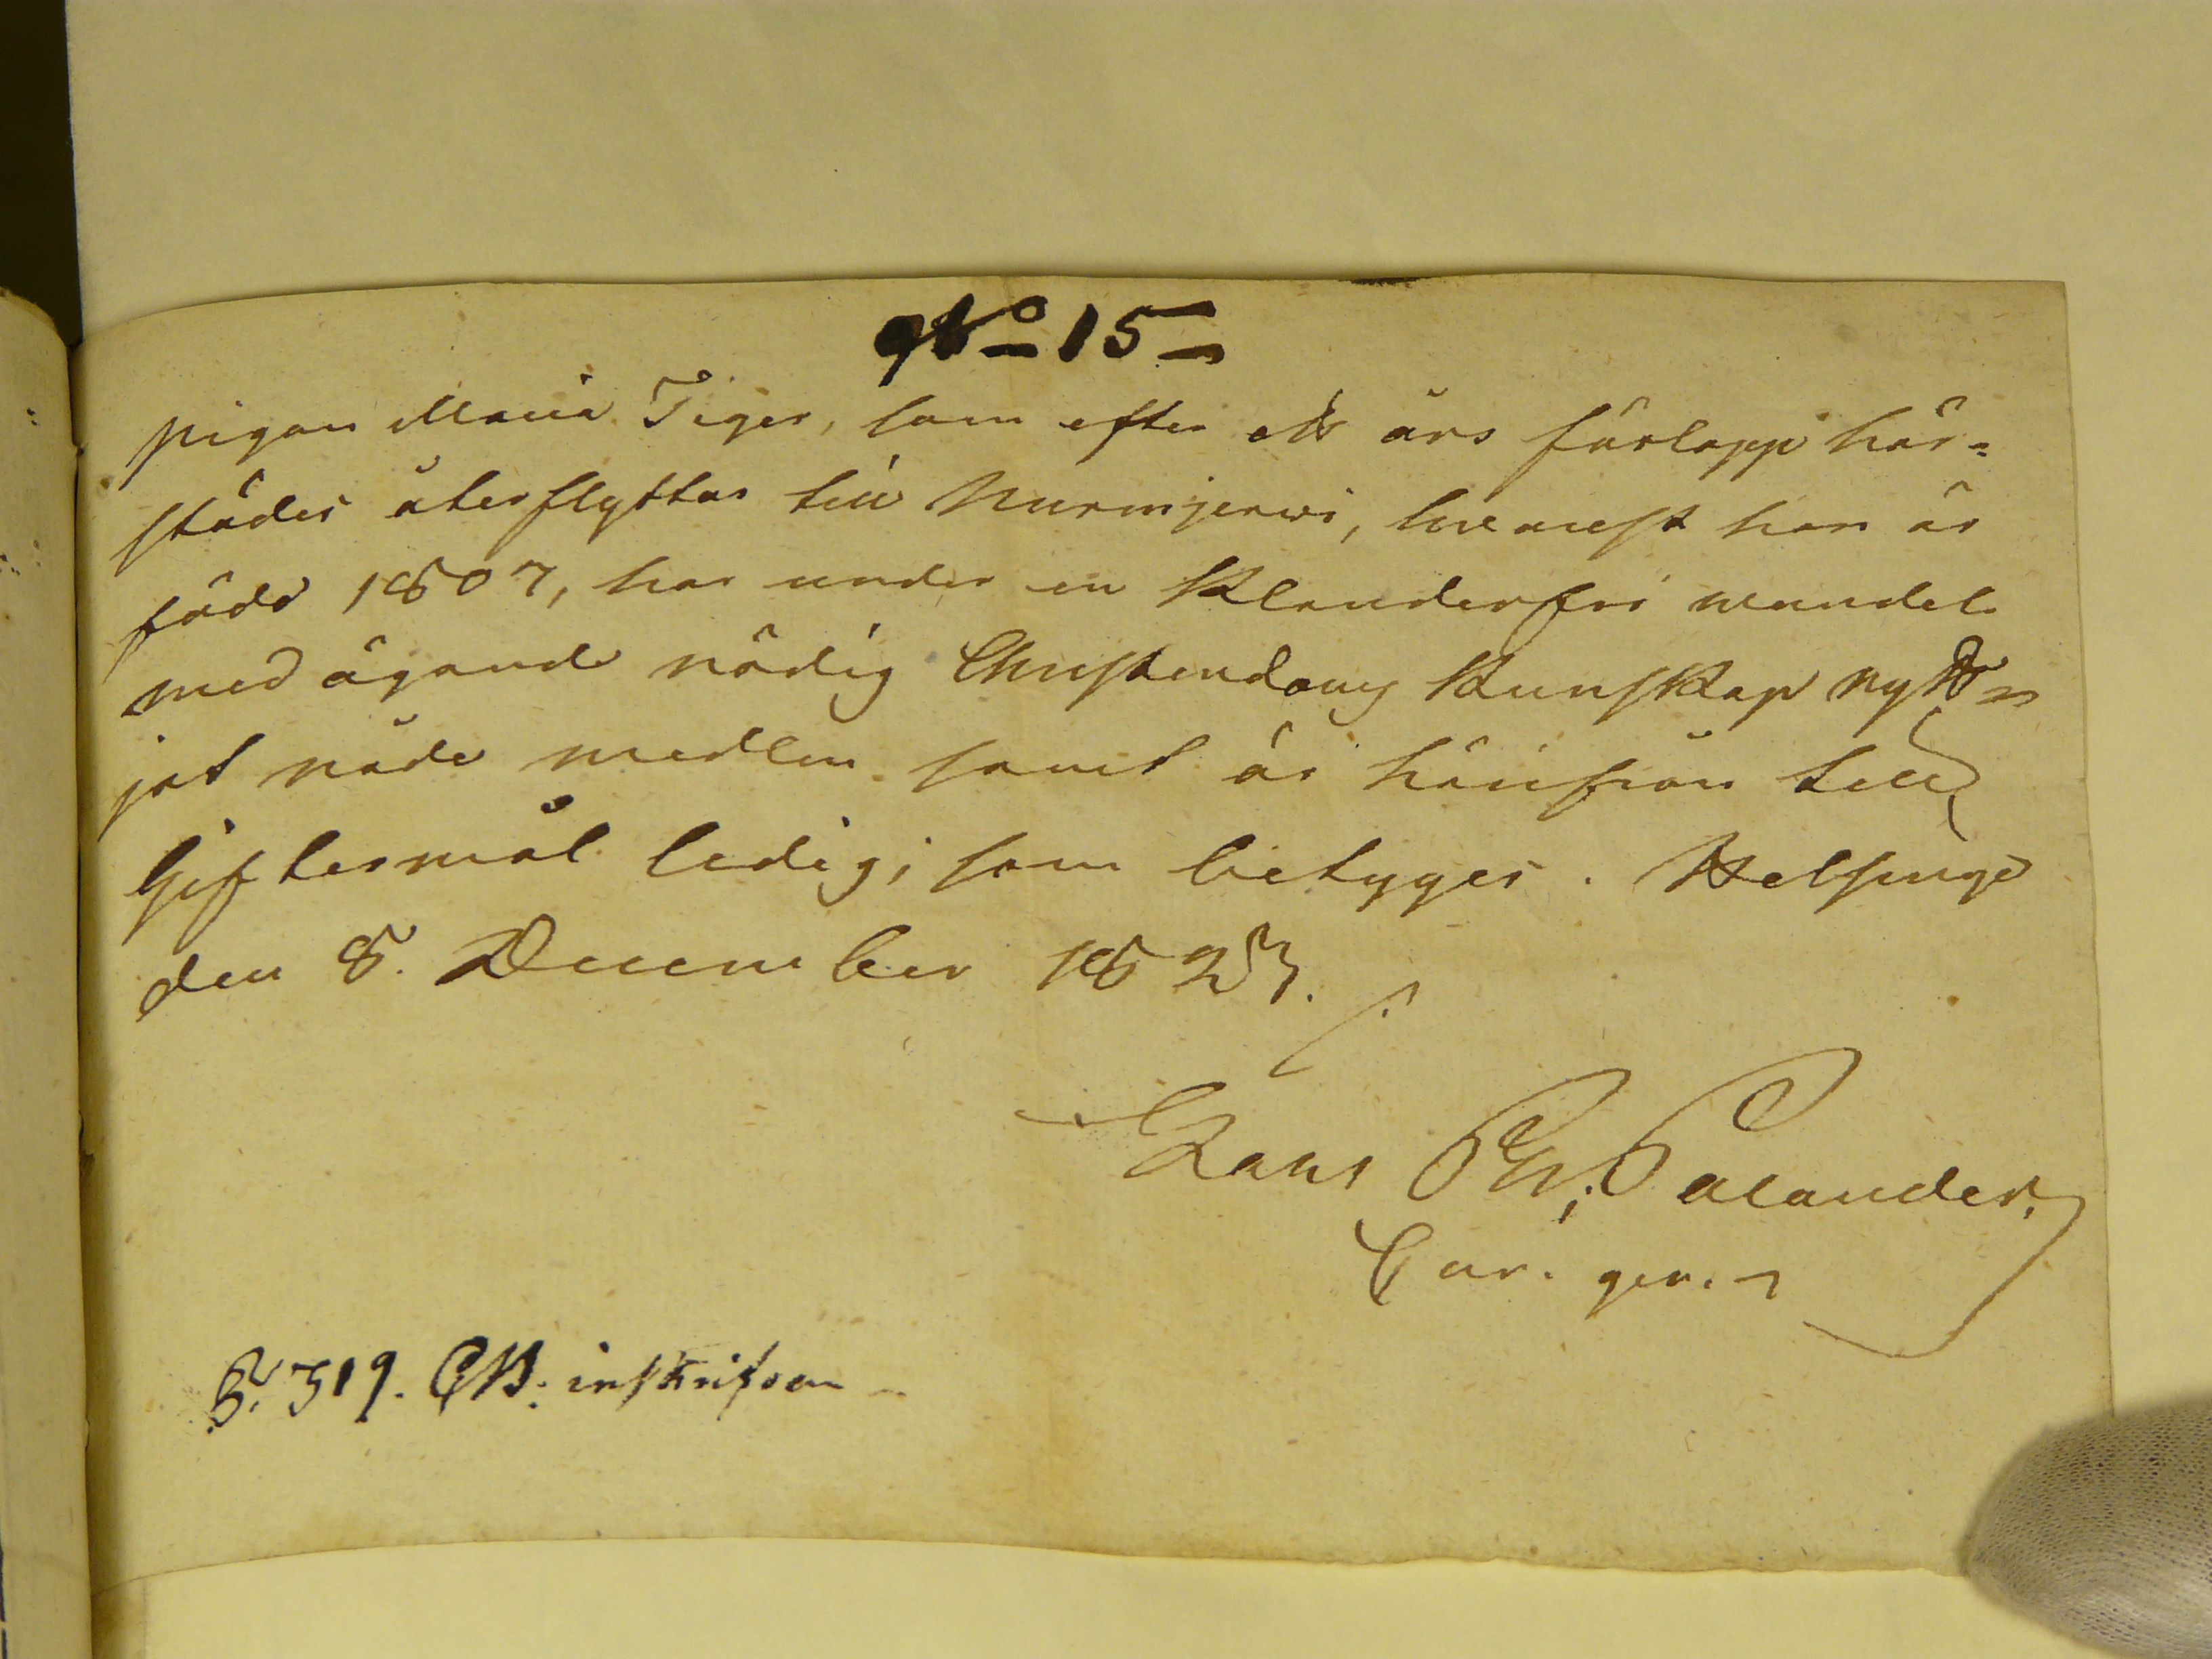 No 15
pigan Maria Tiger, som efter ett års förlopp här=
städes återflyttar till Nurmijerwi, hwarest hon är
född 1807, har under en Klanderfri wandel
med ägande nödig Christendoms Kunskap nytt=
jat nåde medlen samt är härifrån till
Giftermål ledig; som betyges. Helsinge
den 8. December 1823.
Palander.
Cur. ger.
S. 319. CB. inskrifven